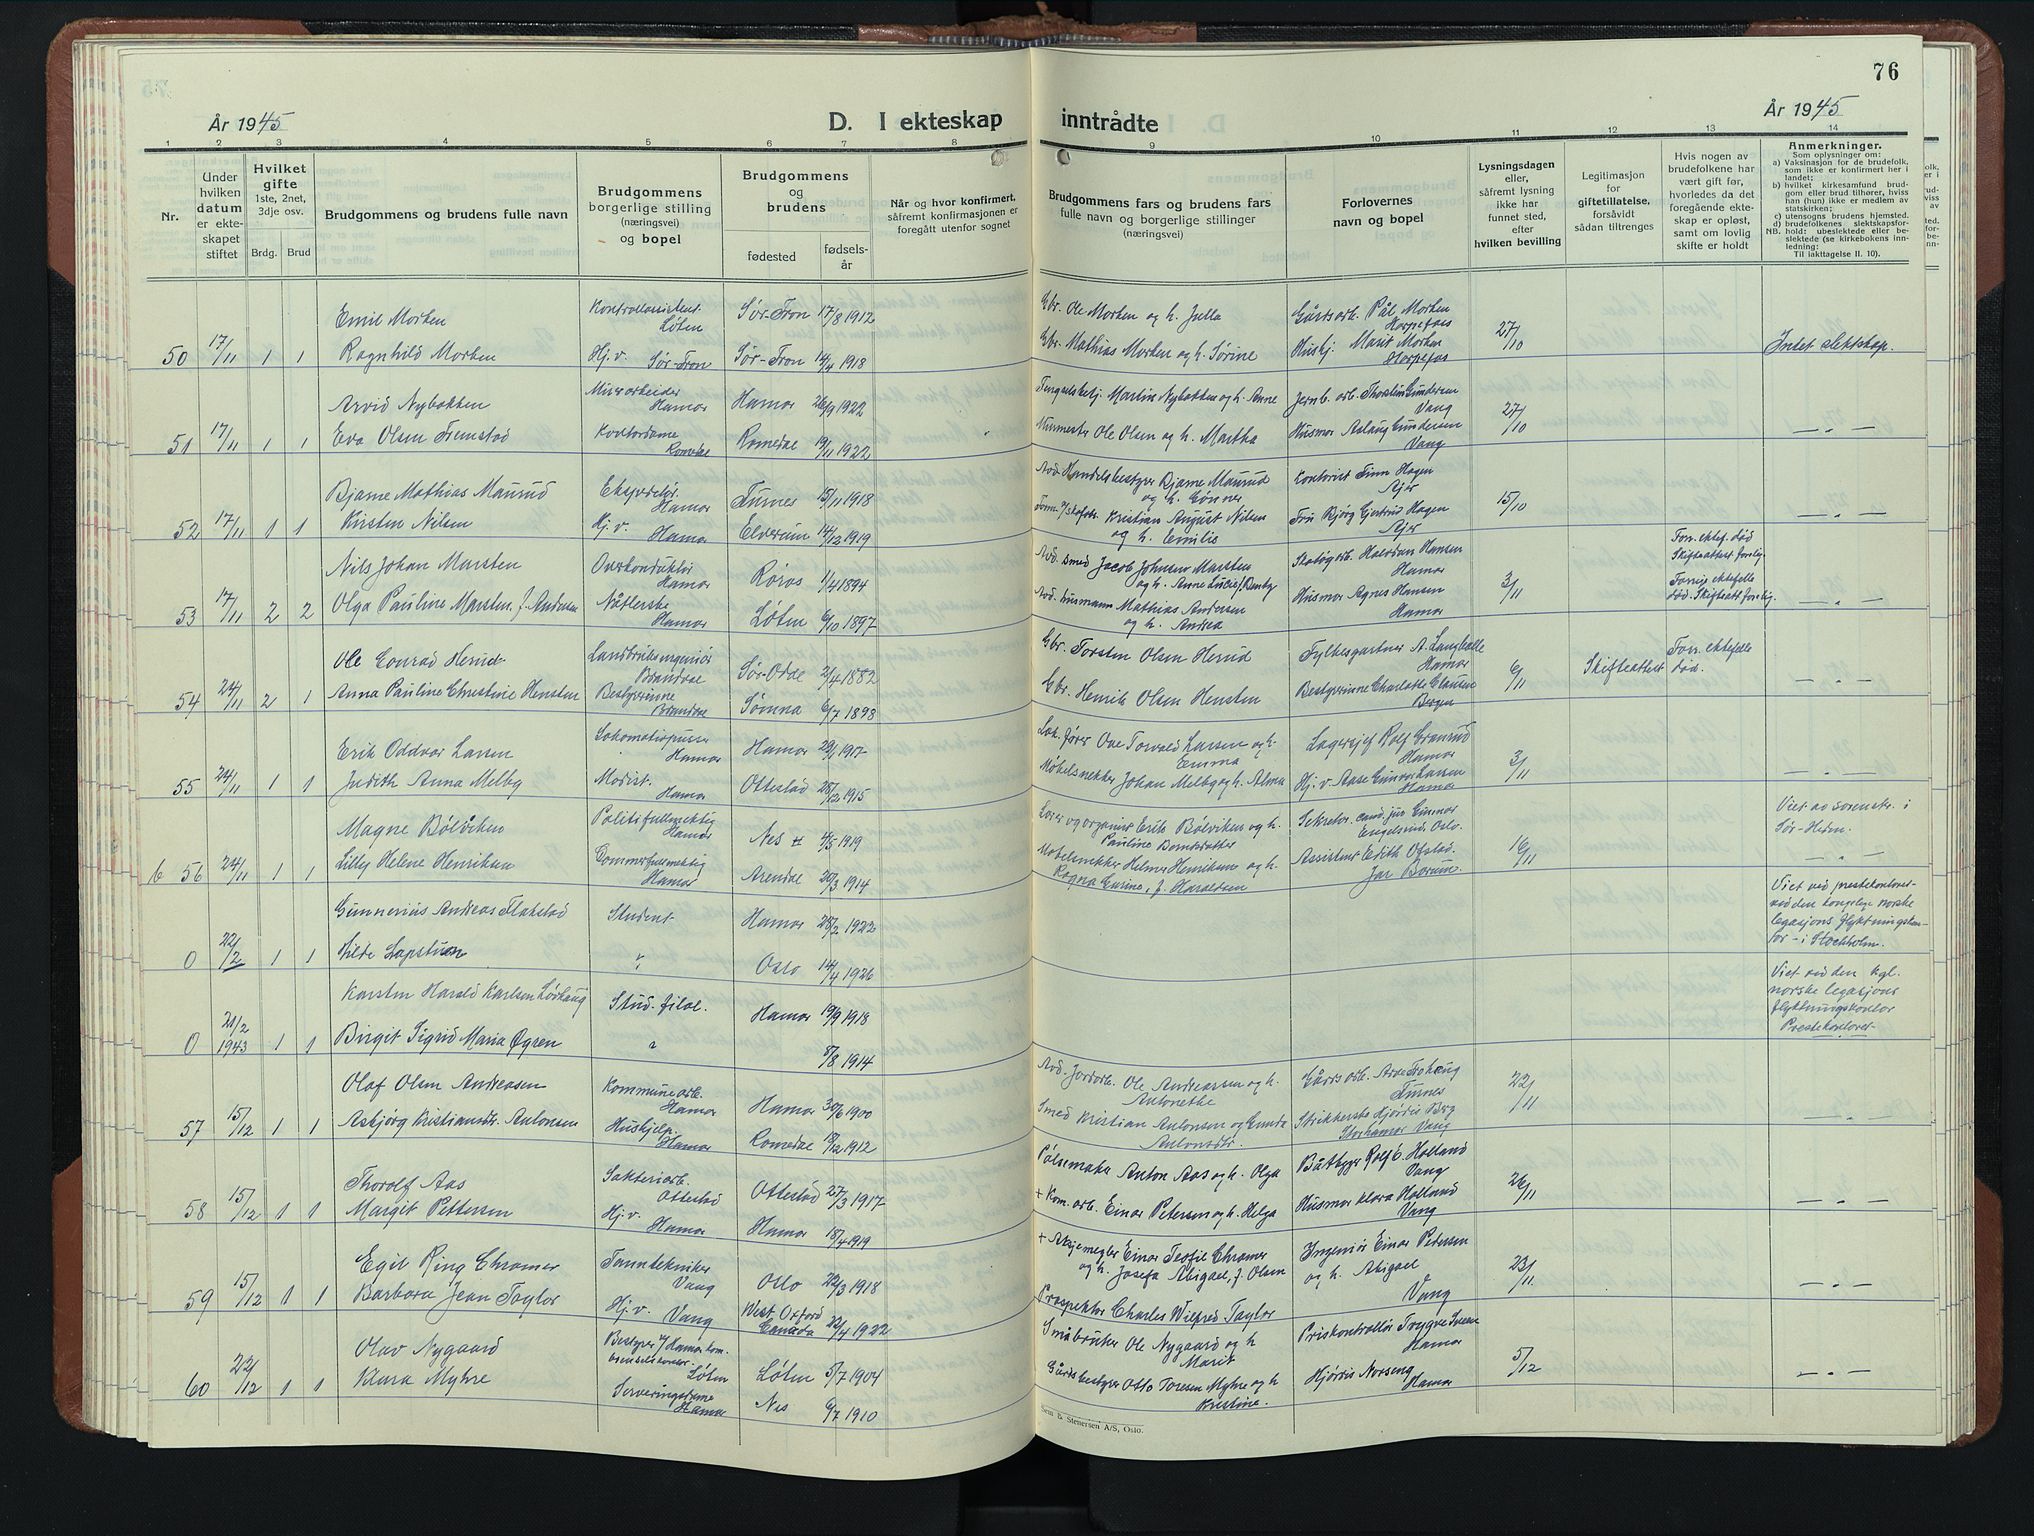 76
År 1945
D. I ekteskap inntrådte
År 1945
1 2 3 4 5 6 7 8 9 10 11 12 13 14
Nr.
Under hvilken datum er ekteskapet stiftet
Hvilket gifte 1ste, 2net, 3dje osv.
Brdg. Brud
Brudgommens og brudens fulle navn
Brudgommens borgerlige stilling (næringsvei) og bopel
Brudgommens og brudens
fødested
fødselsår
Når og hvor konfirmert, såfremt konfirmasjonen er foregått utenfor sognet
Brudgommens fars og brudens fars fulle navn og borgerlige stillinger (næringsvei)
Forlovernes navn og bopel
Lysningsdagen eller, såfremt lysning ikke har funnet sted, efter hvilken bevilling
Legitimasjon for giftetillatelse, forsåvidt sådan tiltrenges
Hvis nogen av brudefolkene har vært gift før, hvorledes da det foregående ekteskap er opløst, samt om lovlig skifte er holdt
Anmerkninger.
Som oplysninger om:
a) Vaksinasjon for de brudefolk, som ikke er konfirmert her i landet;
b) hvilket kirkesamfund brudgom eller brud tilhører, hviss han (hun) ikke er medlem av statskirken;
c) utensogns brudens hjemsted.
d) brudefolkenes slektskapsforhold: ubeslektede eller beslektede (se kirkebokens innledning;
NB.
Til iakttagelse II. 10).
Emil Morken Kontrollassistent Løten Sør-Fron 17/8 1912 Gbr. Ole Morken og h. Julla Gårdsarb. Pål Morken Harpefoss
50 17/11 1 1 Ragnhild Morken Hj.v. Sør-Fron Sør-Fron 14/4 1918 Gbr. Mathias Morken og h. Sørine Huskj. Marit Morken Harpefoss 27/10 Intet slektskap.
Arvid Nybakken Murarbeider Hamar Hamar 26/9 1922 Fengselsbetj. Martin Nybakken og h. Anne Jernb. arb. Thorstein Gundersen Vang
51 17/11 1 1 Eva Olsen Fremstad Kontordame Romedal Romedal 19/11 1922 Murmester Ole Olsen og h. Martha Husmor Aslaug Gundersen Vang 27/10 — „ —
Bjarne Mathias Maurud Ekspeditør. Hamar Furnes 15/11 1918 Avd. Handelsbestyrer Bjarne Maurud og h. Gønner Kontorist Finn Hagen Ajer
52 17/11 1 1 Kirsten Nilsen Hj.v. Hamar Elverum 14/12 1919 Kristian August Nilsen og h. Emilie Fru Bjørg Gjertrud Hagen Ajer 15/10 — „ —
Nils Johan Marsten Overkonduktør Hamar Røros 1/4 1894 Avd. smed Jacob Johnsen Marsten og h. Anne Lucie Skabigarb. Halvdan Hansen Hamar Forr. ektef. død Skifteattest forelig.
53 17/11 2 2 Olga Pauline Marsten, f. Andersen Nåtlerske Hamar Løten 6/10 1897 Avd. husmann Mathias Andersen og h. Andrea Husmor Agnes Hansen Hamar 3/11 Forrige ektefelle død. Skifteatt. forelig. — „ —
Ole Conrad Herud Landbruksingeniør Brandval Sør-Odal 2/4 1882 Gbr. Torsten Olsen Herud Fylkesgartner A. Langballe Hamar
54 24/11 2 1 Anna Pauline Christine Hensten Bestyrerinne Brandval Sømna 6/7 1898 Gbr. Henrik Olsen Hensten Bestyrerinne Charlotte Clausen Bergen 6/11 Skifteattest Forr. ektefelle død. — „ —
Erik Oddvar Larsen Lokomotivpusser Hamar Hamar 29/1 1917 Lok. fører Ove Torvald Larsen og h. Emma Lagersjef Rolf Granrud Hamar
55 24/11 1 1 Judith Anna Melby Modist. Hamar Ottestad 28/12 1915 Møbelsnekker Johan Melby og h. Alma Hj.v. Aase Gunvor Larsen Hamar 3/11 — „ —
Magne Bølviken Politifullmektig Hamar Nes H 4/5 1919 Lærer og organist Erik Bølviken og h. Pauline Berndsdatter Sekretær cand. jur Gunnar Engelsrud, Oslo. Viet av sorenskr. i Sør-Hedm.
6 56 24/11 1 1 Lilly Helene Henriksen Dommerfullmektig Hamar Arendal 20/3 1914 Møbelsnekker Helmer Henriksen og h. Ragna Gurine, f. Haraldsen Assistent Edith Ofstad. Jar Bærum. 16/11 — „ —
Gunnerius Andreas Flakstad Student Hamar 28/2 1922 Viet ved prestekontoret ved den kongelige norske legasjons flyktningskontor - i Stockholm.
0 22/2 1 1 Hilde Lapstuen „ Oslo 14/4 1926
Karsten Harald Karlsen Lørhaug Stud. filol. Hamar 19/9 1918 Viet ved den kgl. norske legasjons flyktningskontor Prestekontoret
0 21/2 1943 1 1 Birgit Sigrid Maria Øgren „ 8/8 1914
Olaf Olsen Andreassen Kommunearb. Hamar Hamar 30/6 1900 Avd. Jordarb. Ole Andreassen og h. Antonethe Gårdsarb. Arne Frohaug Furnes
57 15/12 1 1 Asbjørg Kristiansdtr. Antonsen Huskjelp. Hamar Romedal 18/12 1912 Smed Kristian Antonsen og Gunda Antonsdtr. Strikkerske Hjørdis Berg Storhamar Vang 22/11 — „ —
Thorolf Aas Slakteriarb. Ottestad Ottestad 27/3 1917 Pølsemaker Anton Aas og h. Olga Båtbygger Rolf O. Holland Vang
58 15/12 1 1 Margit Pettersen Hj.v. Hamar Hamar 18/4 1919 + Kom. arb. Einar Petersen og h. Helga Husmor Klara Holland Vang 26/11 — „ —
Egil Ring Chramer Tanntekniker Vang Oslo 22/3 1918 + Aksjemegler Einar Teofil Chramer og h. Josefa Abigael, f. Olsen Ingeniør Einar Petersen og h. Abigael Vang
59 15/12 1 1 Barbara Jean Taylor Hj.v. Vang West Oxford Canada 22/4 1922 Prospektor Charles Wilfred Taylor 23/11 — „ —
Olav Nygaard Bestyrer v/ Hamar kom. brenselskontor. Løten Løten 5/7 1904 Småbruker Ole Nygaard og h Marit Priskontrollør Trygve Hamar
60 22/12 1 1 Klara Myhre Serveringsdame Hamar Nes 6/7 1910 Gårdsbestyrer Otto Toresen Myhre og h Kristine. Hjørdis Norseng Hamar 5/12 — „ —
Sem & Stenersen A/S, Oslo.